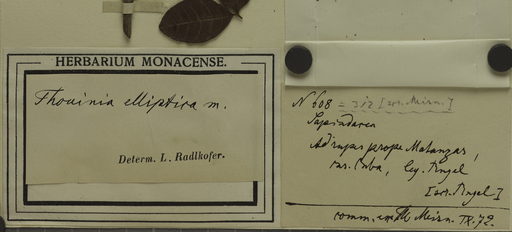 HERBARIUM MONACENSE.
Thouinia elliptica m.
Determ. L. Radlkofer.
N 608 = 312 [
Sapindacea
Ad rupes prope Matanzas,
ins. Cuba, leg. Rugel
Rugel]
comm. Meisn. IX. 72.